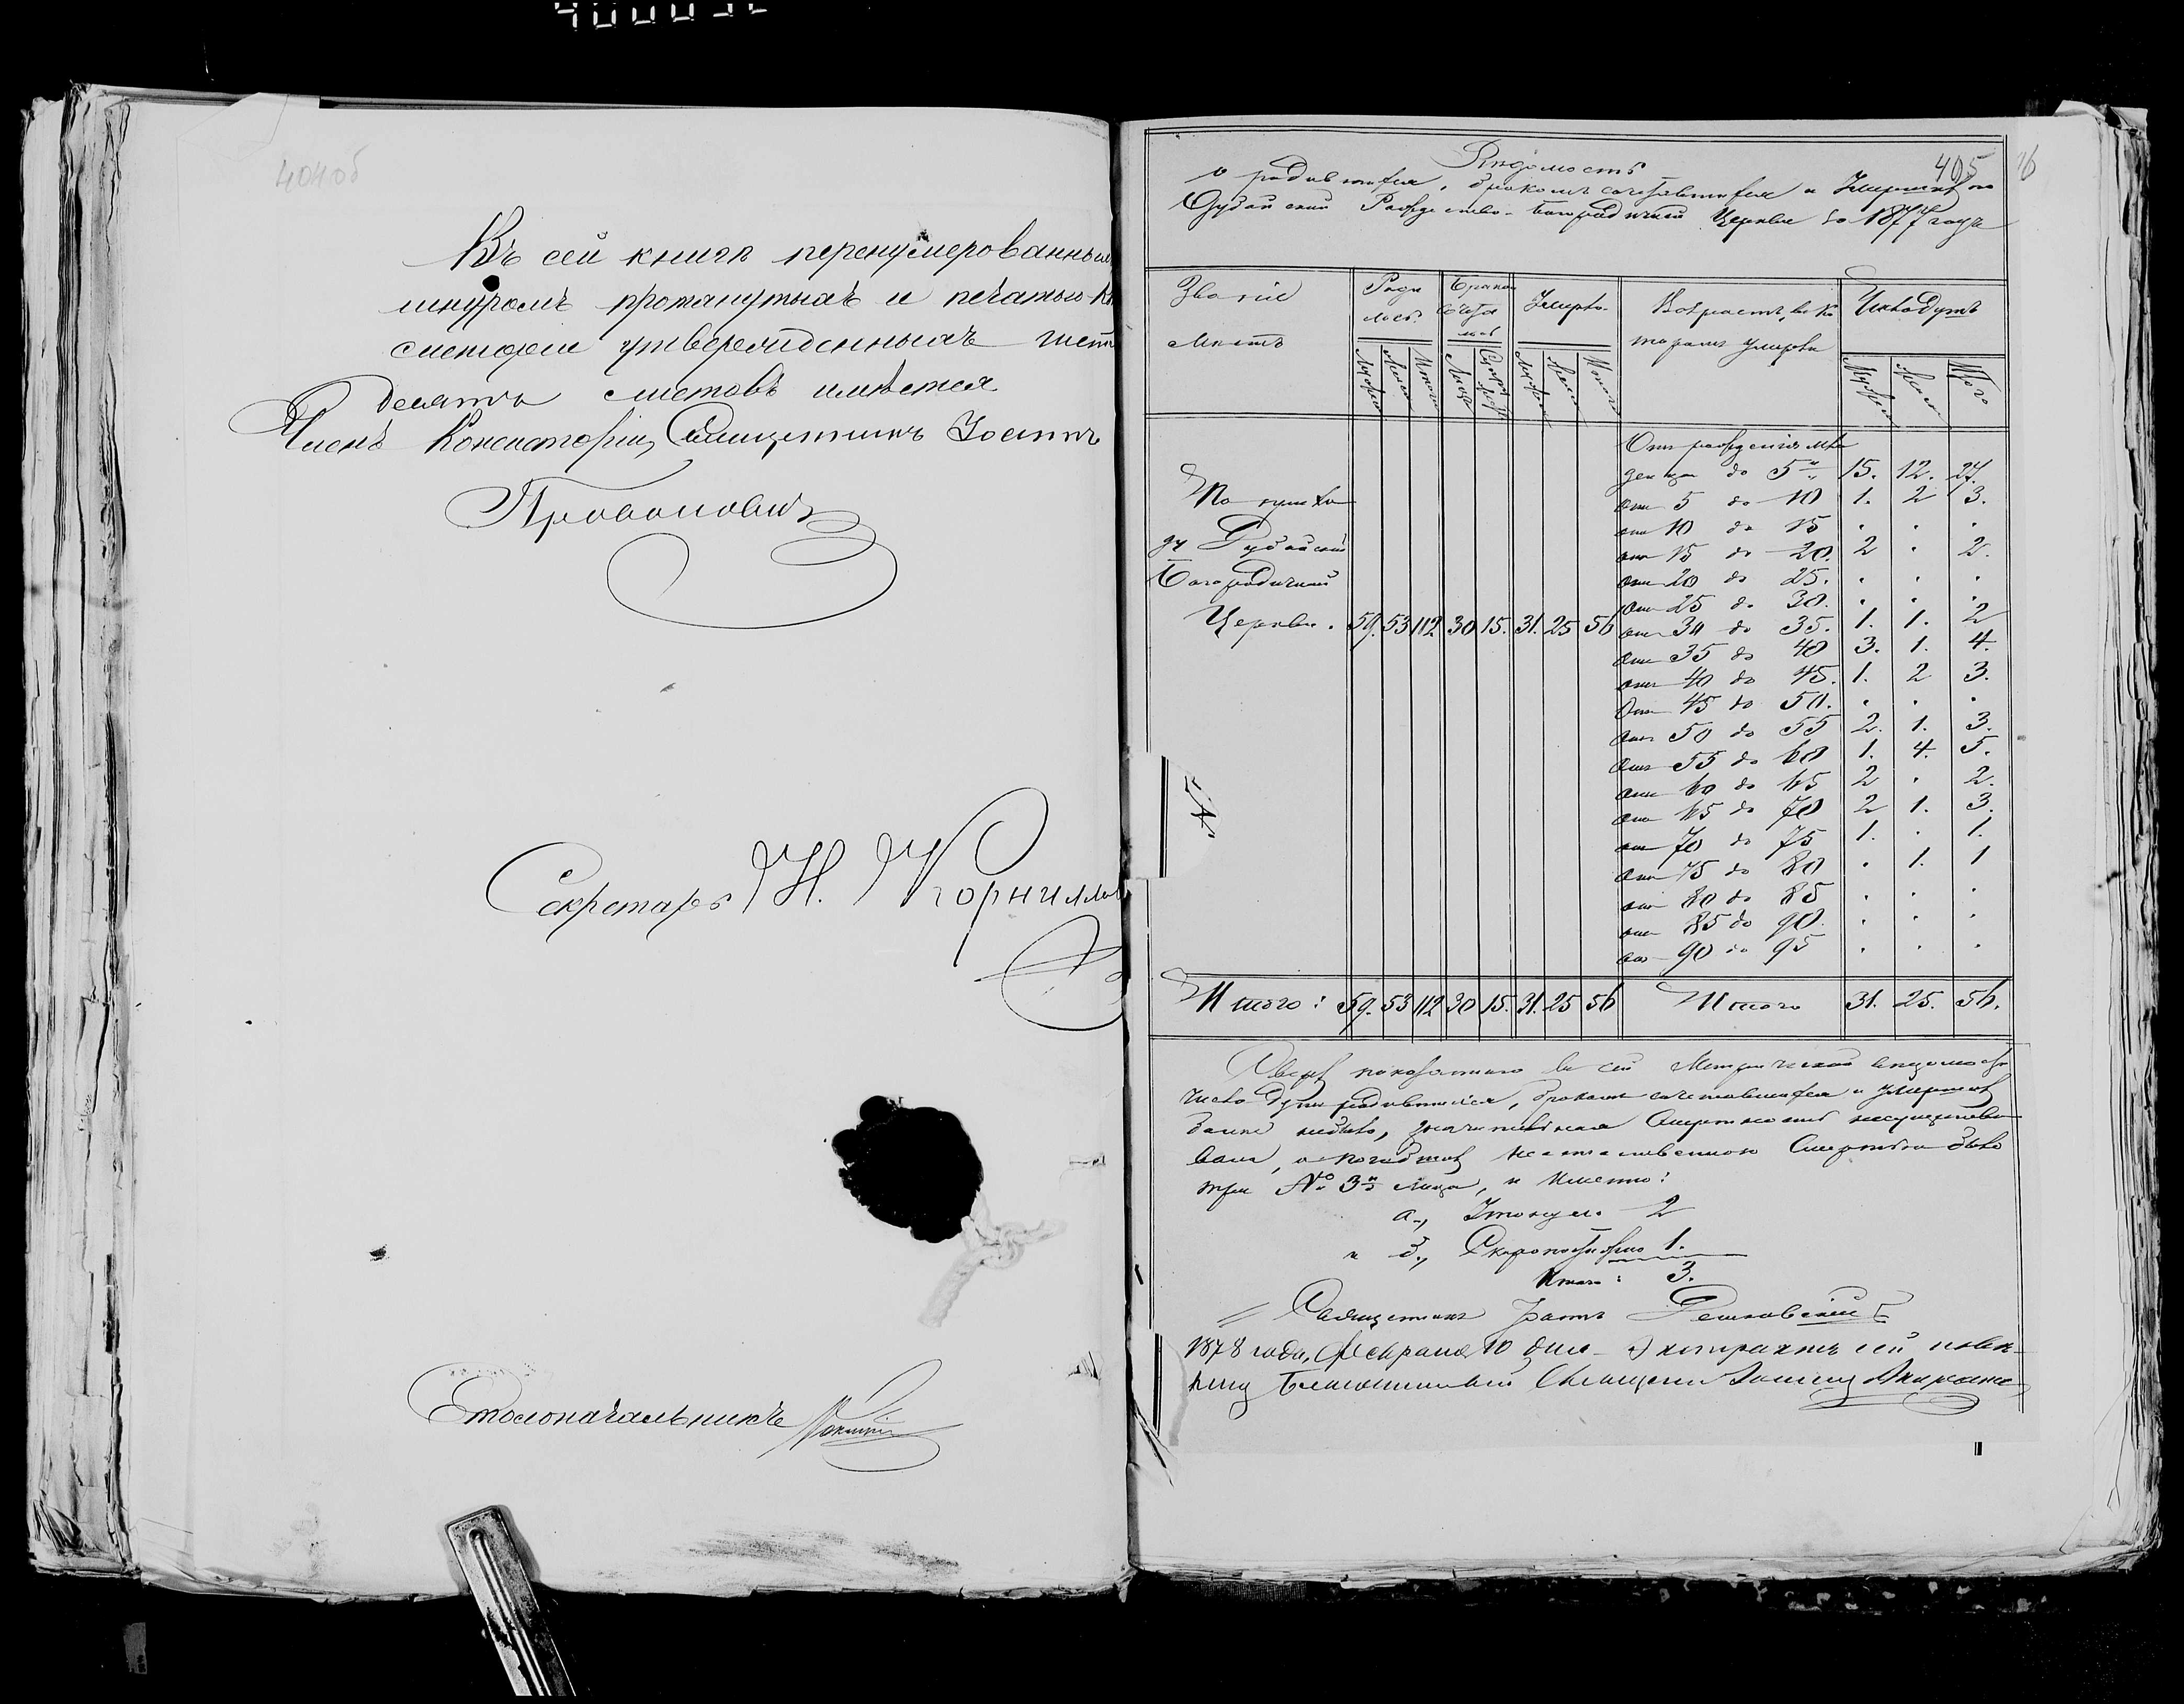 404об
Въ сей книгѣ перенумерованныхъ
шнуромъ протянутыхъ и печатью
утвержденныхъ шесть
десятъ листовъ имѣется.
Членъ Консисторіи, Священникъ Іоаннъ
Секретарь Н. Корнил
Столоначальникъ
405
Вѣдомость
о родившихся, бракомъ сочетавшихся и Умершихъ по
Рождество-Богородичной Церкви за 1877 годъ
Званіе мѣстъ
Роди лось.
Брако сочета лось
Умерло.
Возрастъ, въ ко торомъ умерли
Число душъ
Итого
Отъ рожденія мла
денца до 5 15. 12. 27.
По приходу
отъ 5 до 10 1. 2 3.
отъ 10 до 15 . . .
отъ 15 до 20. 2 . 2.
Богородичной
отъ 20 до 25. . . .
отъ 25 до 30. . . .
Церкви. 59. 53 112 30 15. 31. 25 56
отъ 30 до 35. 1. 1. 2
отъ 35 до 40 3. 1. 4.
отъ 40 до 45. 1. 2 3.
отъ 45 до 50. . . .
отъ 50 до 55 2. 1. 3.
отъ 55 до 60 1. 4. 5.
отъ 60 до 65 2 . 2.
отъ 65 до 70 2 1. 3.
отъ 70 до 75 1. . 1.
отъ 75 до 80 . 1. 1
отъ 80 до 85 . . .
отъ 85 до 90. . . .
отъ 90 до 95 . . .
Итого: 59. 53 112 30 15. 31. 25 56 Итого 31. 25. 56.
Сверхъ показаннаго въ сей Метрической вѣдомости
числа душъ родившихся, бракомъ сочетавшихся и умершихъ
болѣе небыло, смертности несущество
вало, а погибшихъ неестественною Смертію было
три № 3 лица, и именно:
а., Утонули. 2
и б., Скоропостижно 1.
Итого: 3.
Священникъ
1878 года, Февраля 10 дня Экстрактъ сей
Благочинный Священникъ